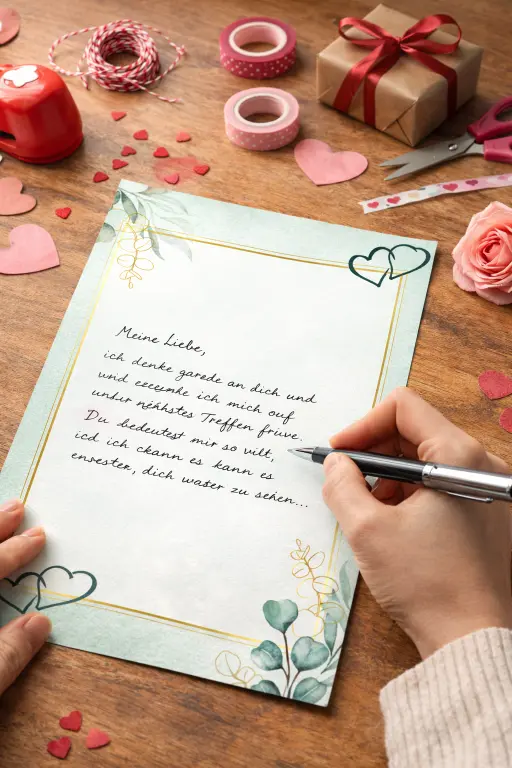 Meine Liebe,
ich denke garade an dich und
wrid ich mich ouf
undur nähhstes Treffen friuve.
Du bedeutest mir so vilt,
icd ich ckann es kann es
enrester, dich water zu sehen...